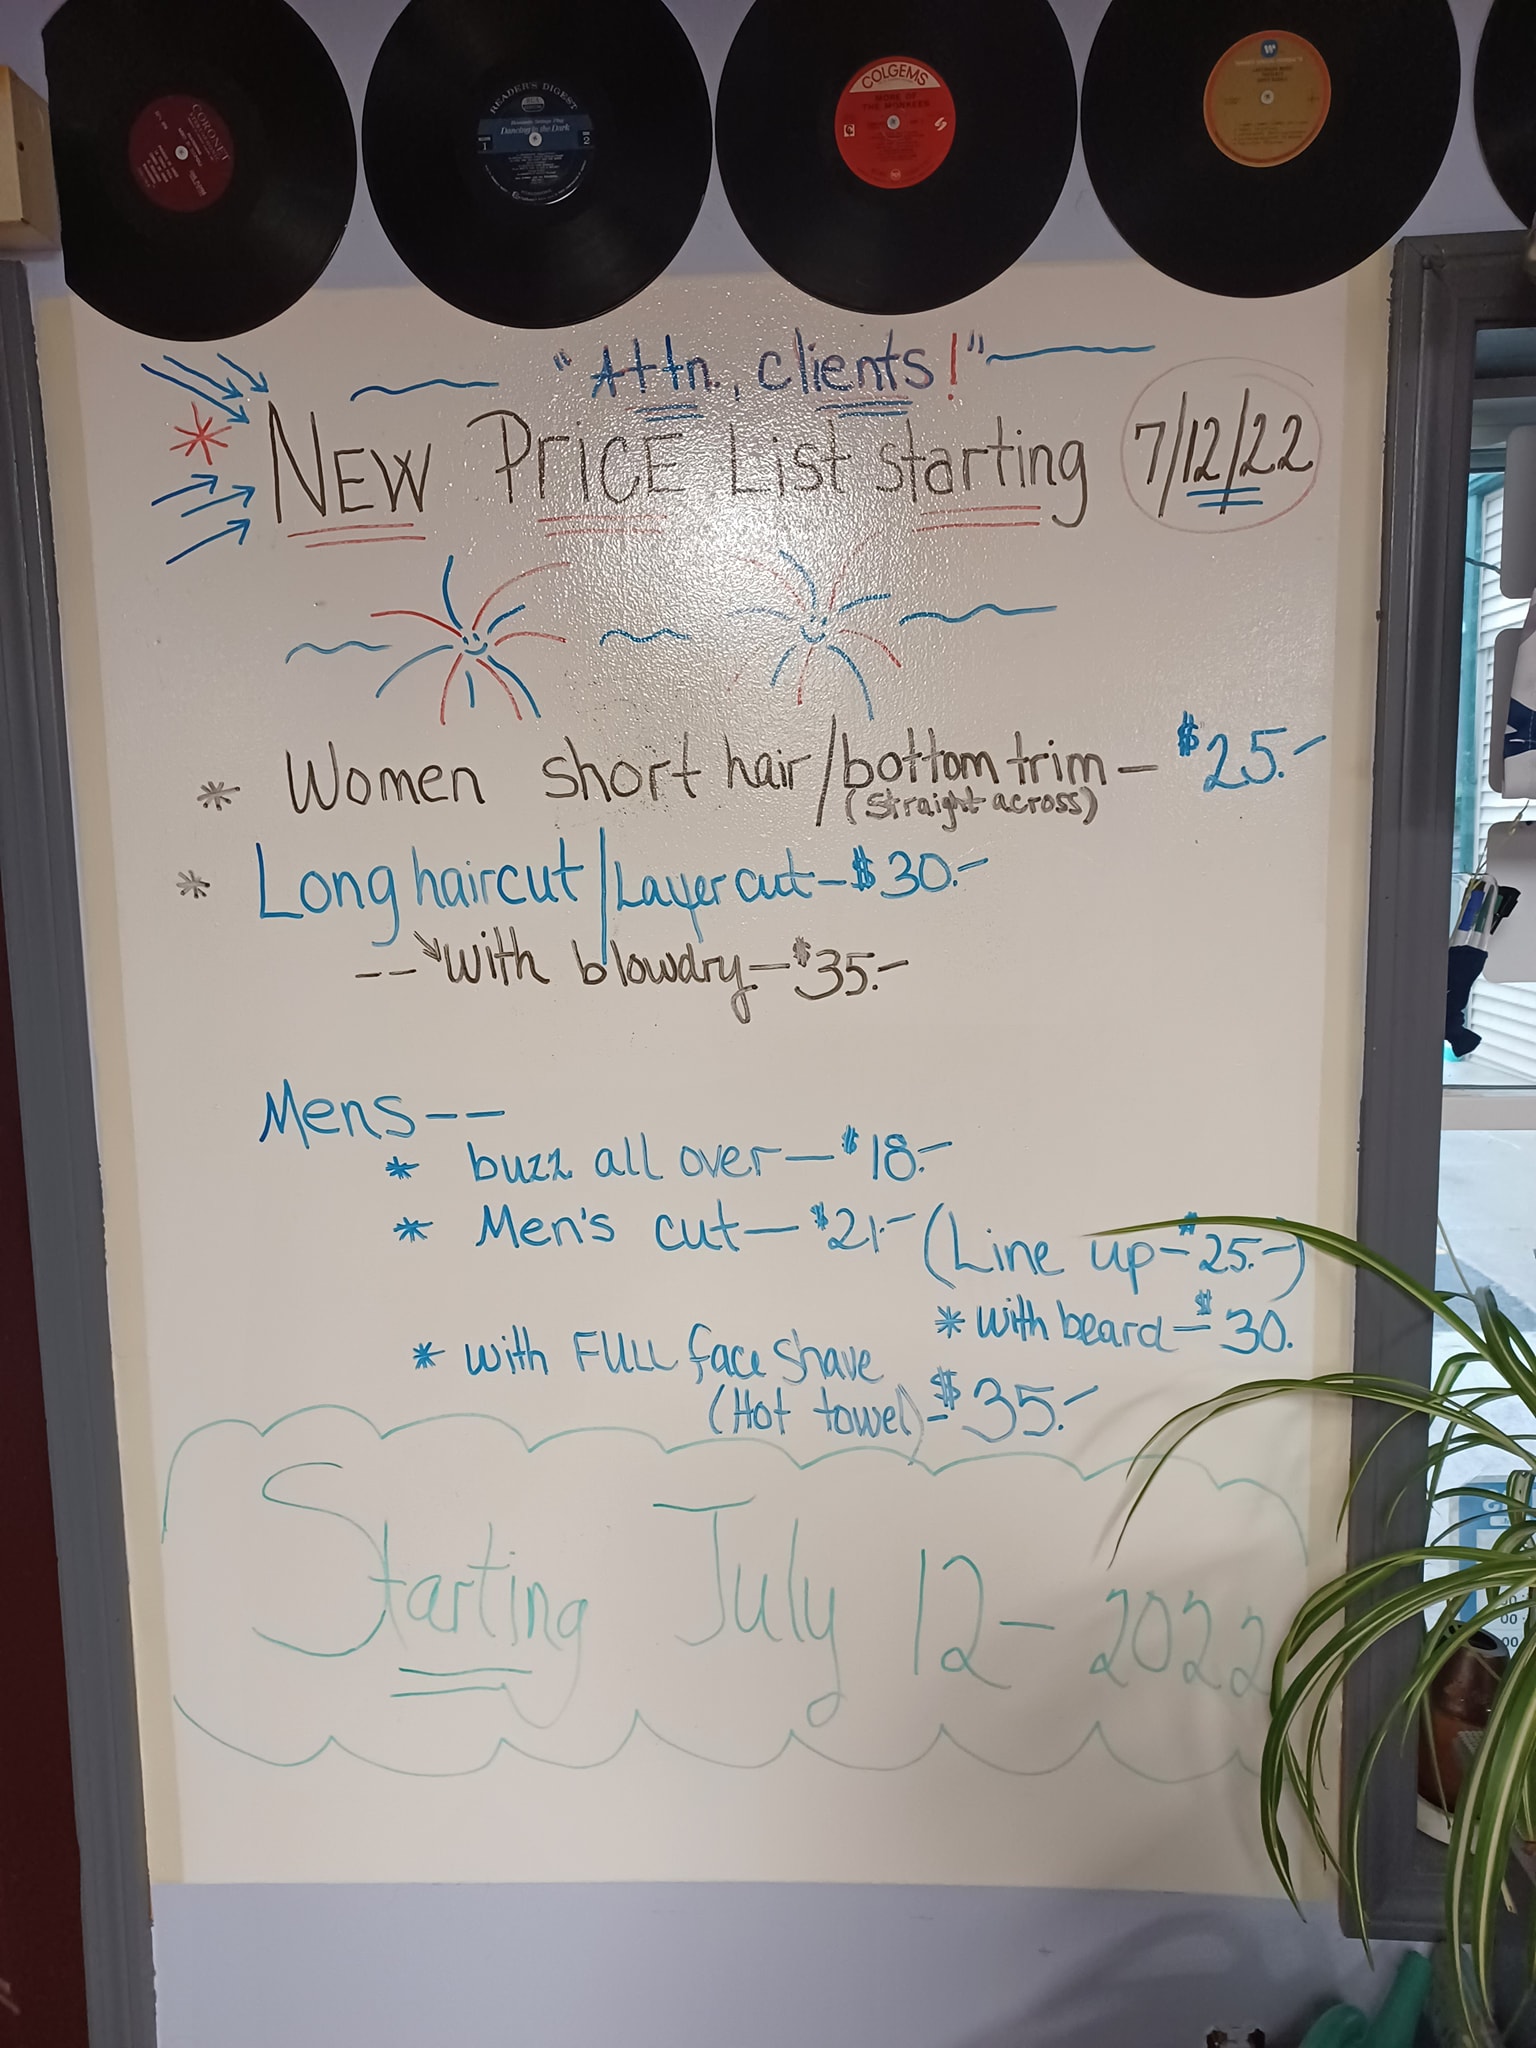 CORONET
READER'S DIGEST
Dancing in the Dark
COLGEMS
MORE OF
THE MONKEES
"Attn., clients!"
NEW PRICE List starting 7/12/22
* Women short hair/bottom trim - $25.-
(straight across)
* Long haircut/Layer cut - $30.-
-- with blowdry - $35.-
Mens --
* buzz all over - $18.-
* Men's cut - $21.- (Line up - $25.-)
* with beard - $30.
* with FULL face shave
(Hot towel) - $35.-
Starting July 12 - 2022